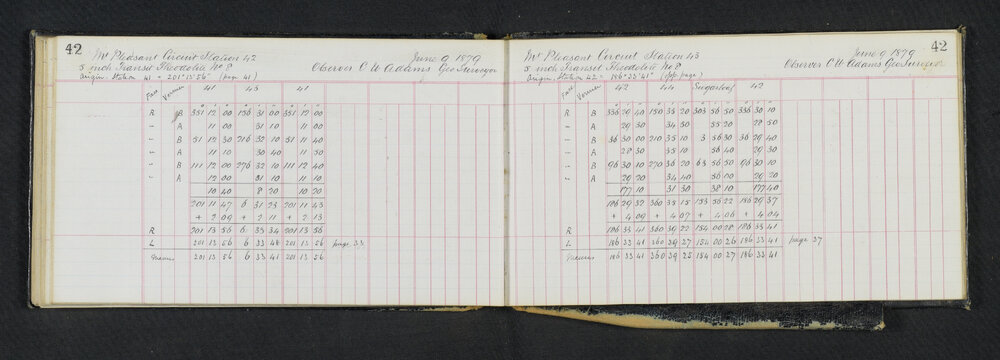 42
Mt Pleasant Circuit Station 42 June 9 1879
5 inch Transit Theodolite No 8 Observer C W Adams Geo Surveyor
Origin. Station 41 = 201° 13' 56" (page 41)
Face Vernier 41 43 41
R B 351 12 00 156 31 00 351 12 00
" A 11 00 31 10 11 00
" B 51 12 30 216 32 10 51 11 40
" A 11 10 30 40 11 50
" B 111 12 00 276 32 10 111 12 40
" A 12 00 31 10 11 10
10 40 8 20 10 20
201 11 47 6 31 23 201 11 43
+ 2 09 + 2 11 + 2 13
R 201 13 56 6 33 34 201 13 56
L 201 13 56 6 33 48 201 13 56 page 33
means 201 13 56 6 33 41 201 13 56
42
Mt Pleasant Circuit Station 43 June 9 1879
5 inch Transit Theodolite No 8 Observer C W Adams Geo Surveyor
Origin. Station 42 = 186° 33' 41" (opp. page)
Face Vernier 42 44 Sugarloaf 42
R B 336 29 40 150 35 20 303 56 50 336 30 10
" A 29 30 34 50 55 20 28 50
" B 36 30 00 210 35 10 3 56 30 36 29 40
" A 28 30 35 10 56 40 29 30
" B 96 30 10 270 36 20 63 56 50 96 30 10
" A 29 20 34 40 56 00 29 20
177 10 31 30 38 10 177 40
186 29 32 360 35 15 153 56 22 186 29 37
+ 4 09 + 4 07 + 4 06 + 4 04
R 186 33 41 360 39 22 154 00 28 186 33 41
L 186 33 41 360 39 27 154 00 26 186 33 41 page 37
means 186 33 41 360 39 25 154 00 27 186 33 41